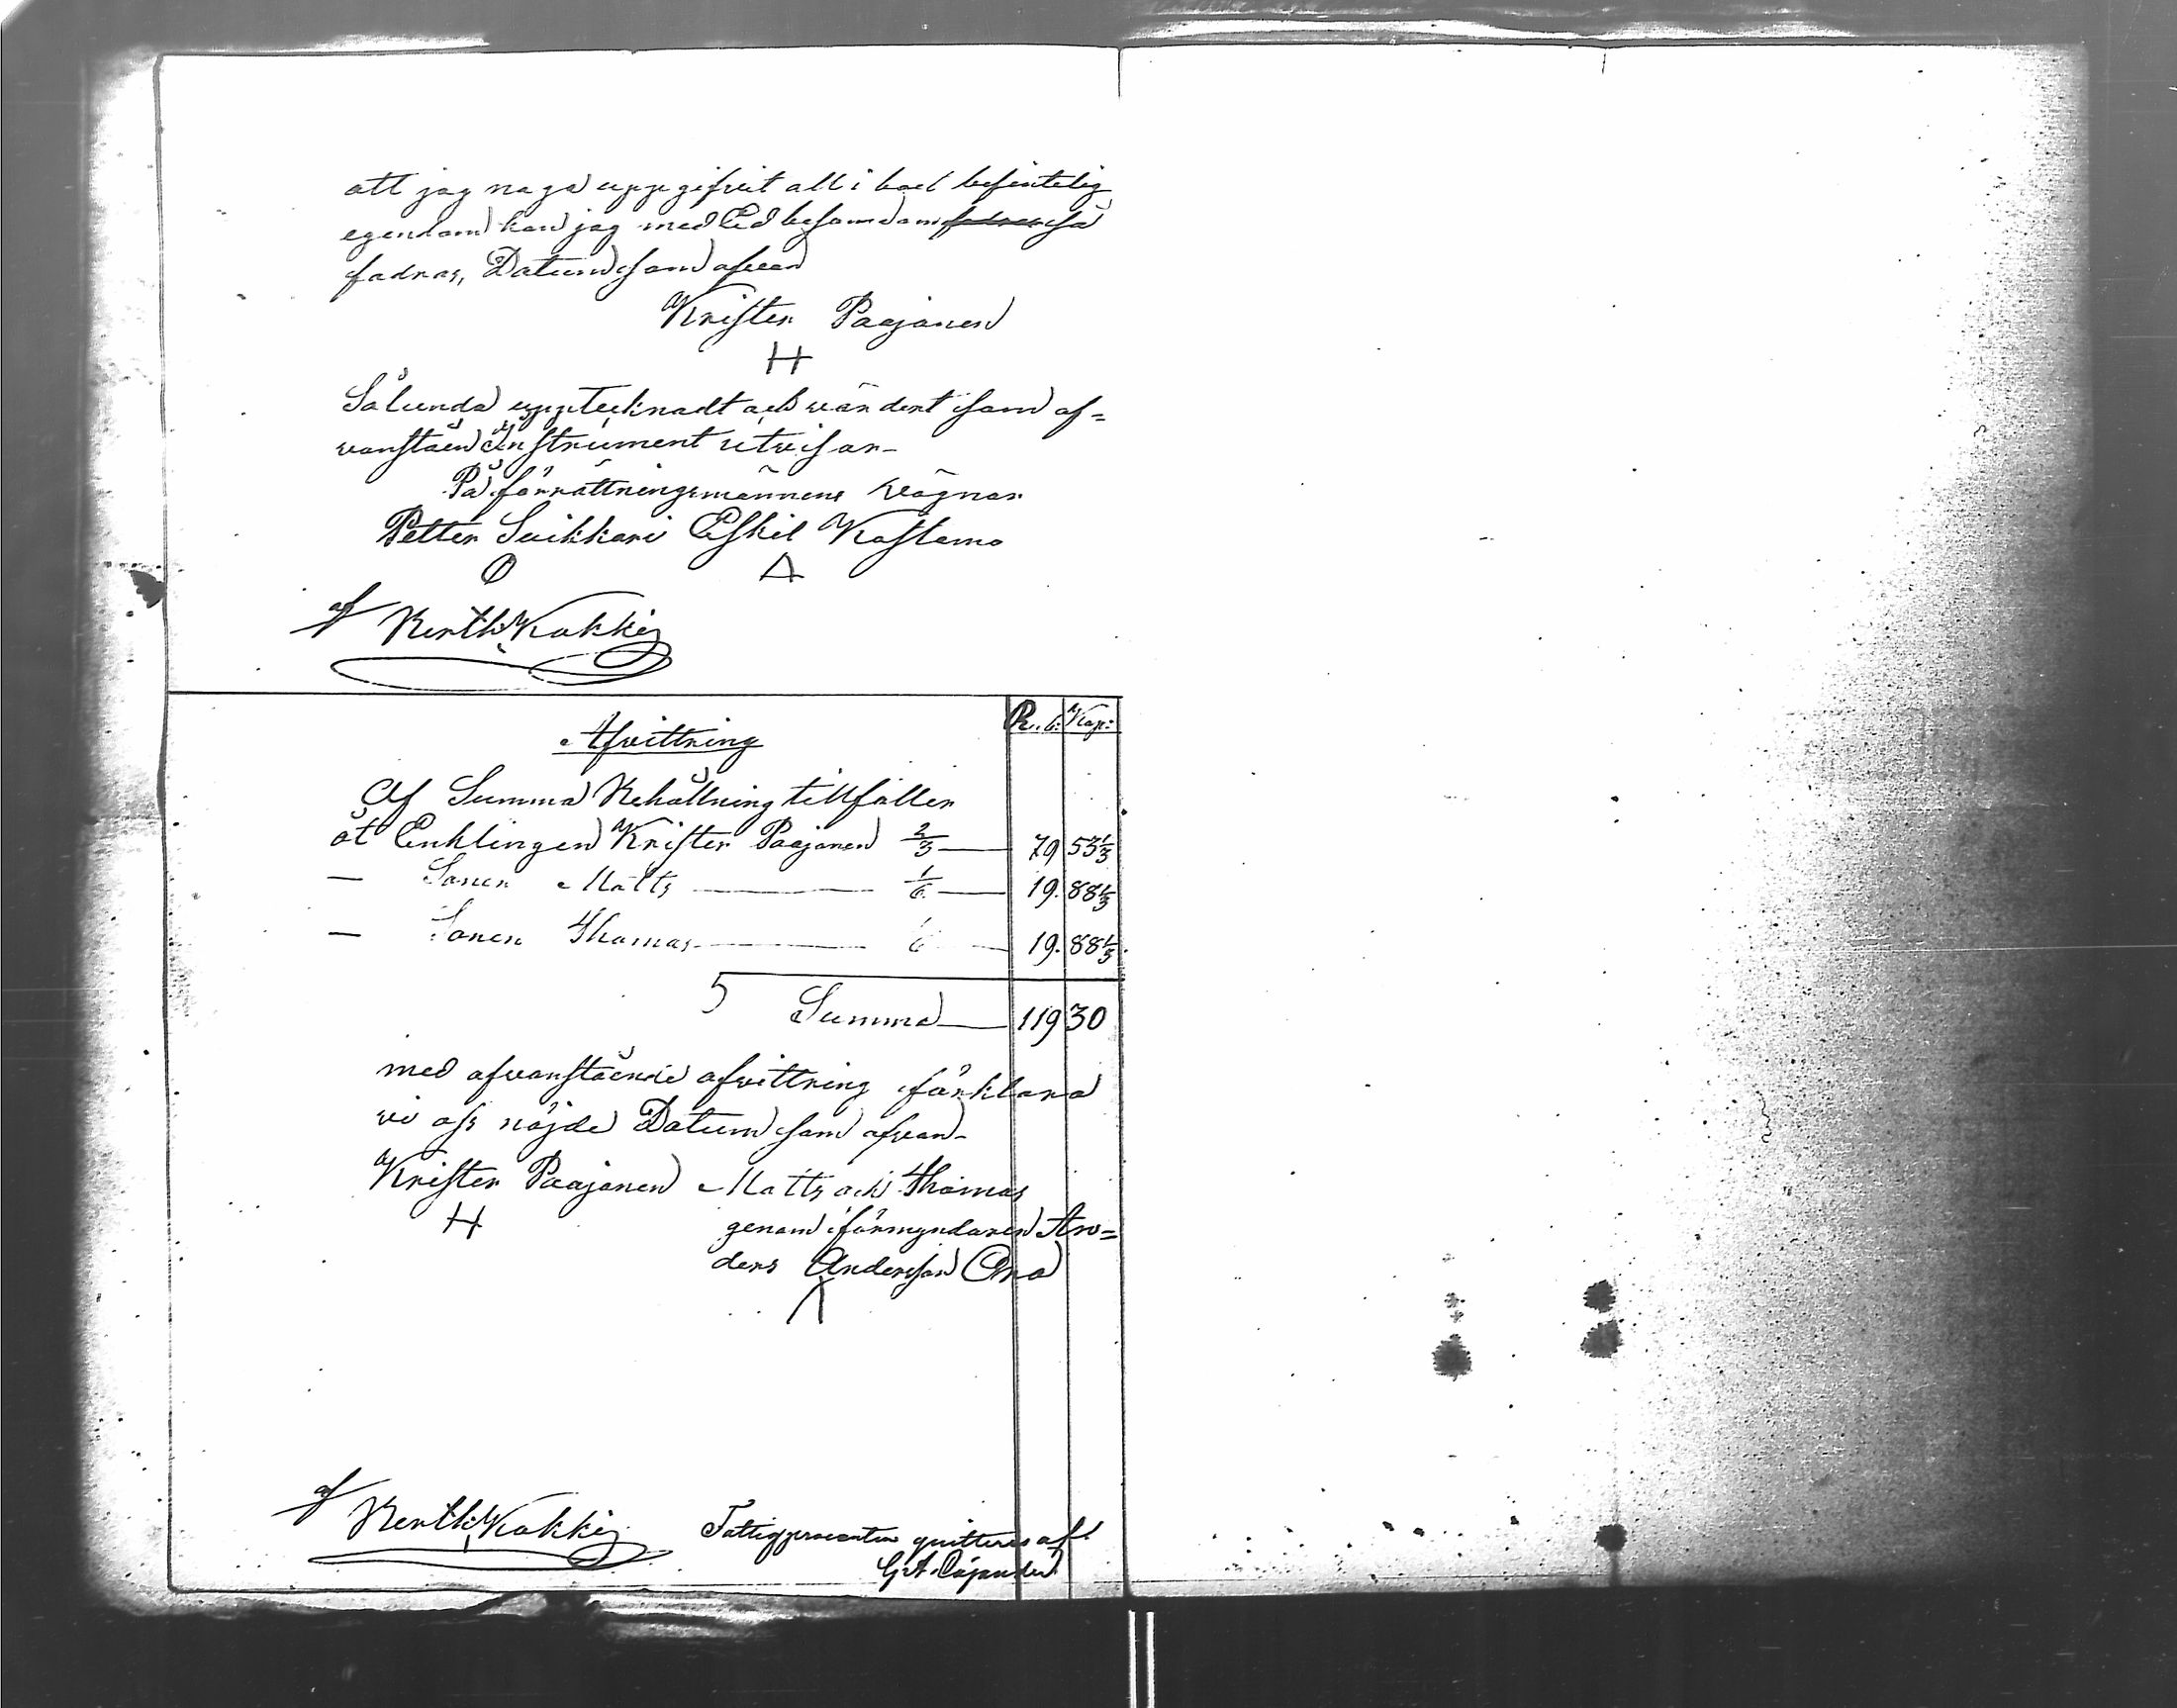 att jag noga uppgifvit all i boet befintelig
egendom kan jag med Ed besanna om så
fadras, Datum som ofvan
Krister Paajanen
H
Sålunda upptecknadt och värdert som of=
vanstäend instrument utvisar-
På förrättningsmännens vägnar
Petter Suikkari Eskil Kostamo
af Kokki
R.b: Kop:
Afvittring
Af Summa Behållning tillfaller
åt Enklingen Krister Paajanen 2/3 — 79 53 1/3
— Sonen Matts — 1/6 — 19. 88 1/3
— Sonen Thomas — 6 — 19. 88 1/3
5 Summa — 119 30
med ofvanstående afvittring förklara
vi oss nöjde Datum som ofvan-
Krister Paajanen Matts och Thomas
H genom förmyndaren An=
ders Andersson
af Kokki Fattigprocenten quitteras af
G.A. Cajander